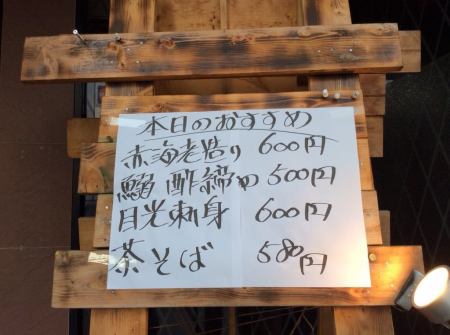 本日のおすすめ
赤海老造り 600円
鰯酢締め 500円
目光刺身 600円
茶そば 580円